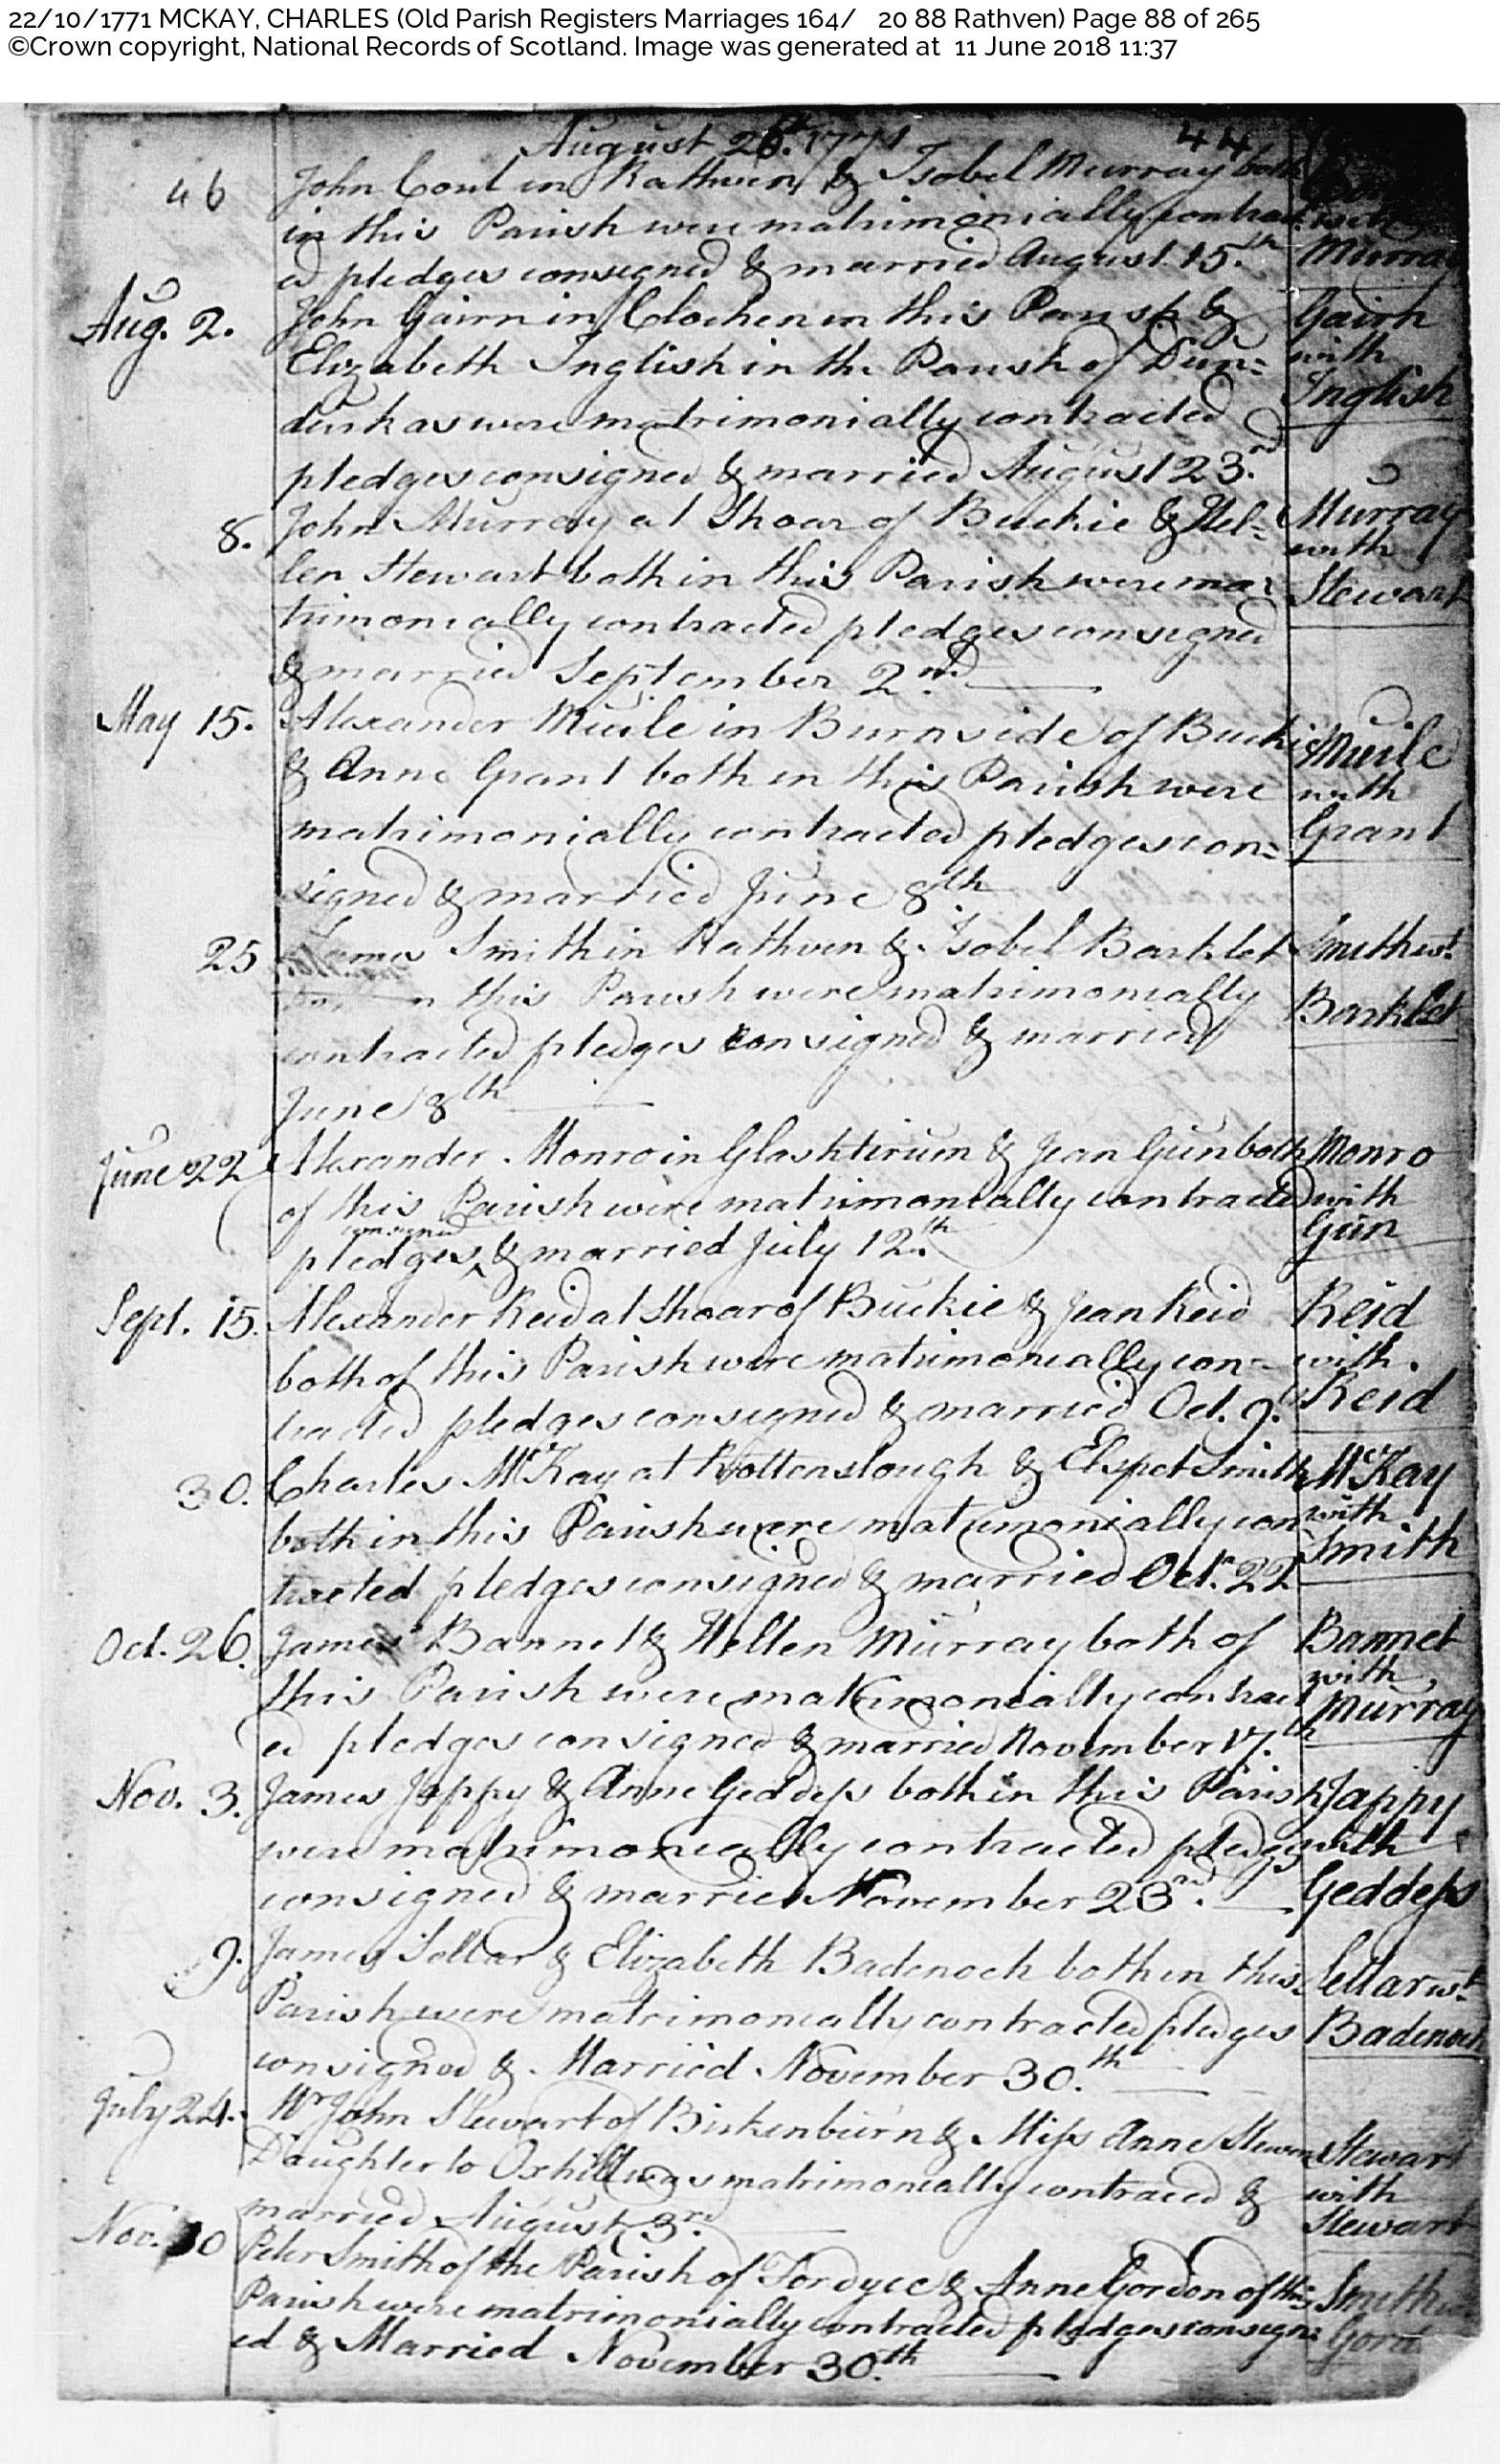 22/10/1771 MCKAY, CHARLES (Old Parish Registers Marriages 164/ 20 88 Rathven) Page 88 of 265
©Crown copyright, National Records of Scotland. Image was generated at 11 June 2018 11:37
August 26th. 1771 44
46 John Coul in Rathven & Isobel Murray both
in this Parish were matrimonially contract
ed pledges consigned & married August 15.th Murray
Aug. 2. John Gairn in Clochen in this Parish & Gairn
Elizabeth Inglish in the Parish of Dun= with
durkas were matrimonially contracted Inglish
pledges consigned & married August 23.rd
8. John Murray at Shoar of Buckie & Hel= Murray
len Stewart both in this Parish were ma= with Stewart
trimonially contracted pledges consigned
& married September 2nd.
May 15. Alexander Muile in Burnside of Buckie Muile
& Anne Grant both in this Parish were with
matrimonially contracted pledges con= Grant
signed & married June 8th.
25 James Smith in Rathven & Isobel Barklet Smith wt.
this Parish were matrimonially Barklet
contracted pledges consigned & married
June 8th
June 22 Alexander Monro in Glashtirum & Jean Gun both Monro
of this Parish were matrimonially contracted with
pledges consigned & married July 12.th Gun
Sept. 15. Alexander Reid at Shoar of Buckie & Jean Reid Reid
both of this Parish were matrimonially con= with
tracted pledges consigned & married Oct. 9. Reid
30. Charles McKay at Rottenslough & Elspet Smith McKay
both in this Parish were matrimonially con with
tracted pledges consigned & married Octr. 22 Smith
Oct. 26. James Bannet & Hellen Murray both of Bannet
this Parish were matrimonially contract with
ed pledges consigned & married November 17.th Murray
Nov. 3. James Jappy & Anne Geddess both in this Parish Jappy
were matrimonially contracted pledges with
consigned & married November 23rd. Geddess
9. James Sellar & Elizabeth Badenoch both in this Sellar wt.
Parish were matrimonially contracted pledges Badenoch
consigned & Married November 30.th
July 24. Mr John Stewart of Birkenburn & Miss Anne Stewart Stewart
Daughter to Oxhill was matrimonially contraced & with
married August 3rd. Stewart
Nov. 10 Peter Smith of the Parish of Fordyce & Anne Gordon of this Smith
Parish were matrimonially contracted pledges consign=
ed & Married November 30.th